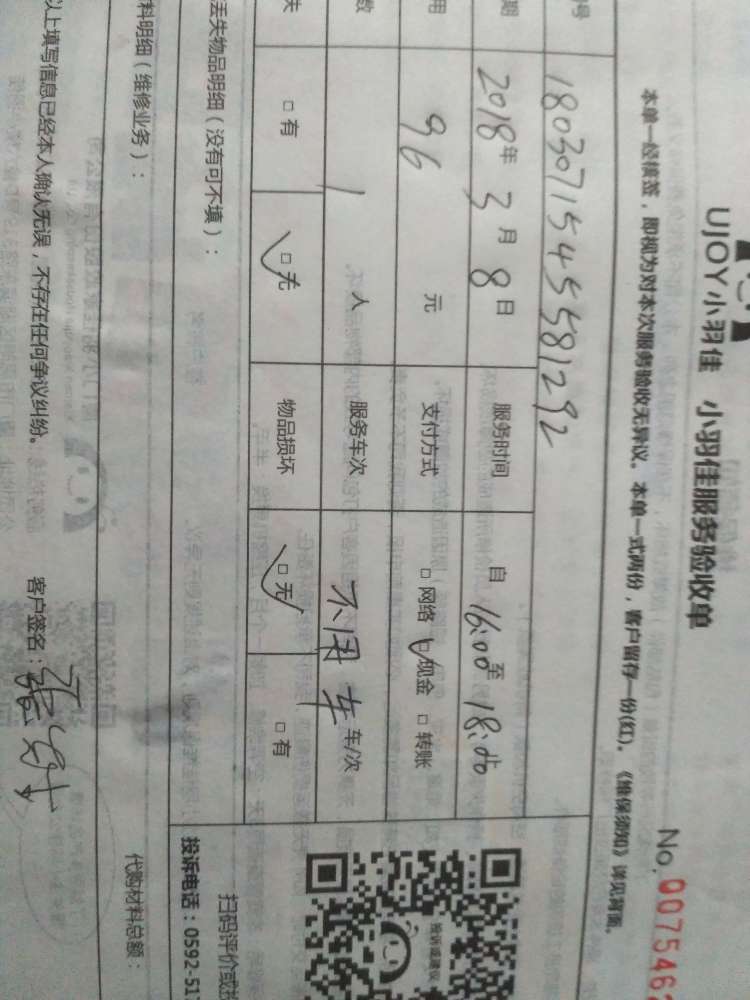 UJOY小羽佳 小羽佳服务验收单
No. 007546
本单一经核签，即视为对本次服务验收无异议。本单一式两份，客户留存一份(红)。《维保须知》详见背面。
号 180307154555581292
期 2018年3月8日 服务时间 自 16:00 至 18:00
用 96 元 支付方式 □ 网络 ☑ 现金 □ 转账
数 1 人 服务车次 不用车 车/次
失 □ 有 ☑ 无 物品损坏 ☑ 无 □ 有
丢失物品明细（没有可不填）：
扫码评价或投
投诉电话：0592-51
投诉或建议
料明细（维修业务）：
代购材料总额：
以上填写信息已经本人确认无误，不存在任何争议纠纷。 客户签名：